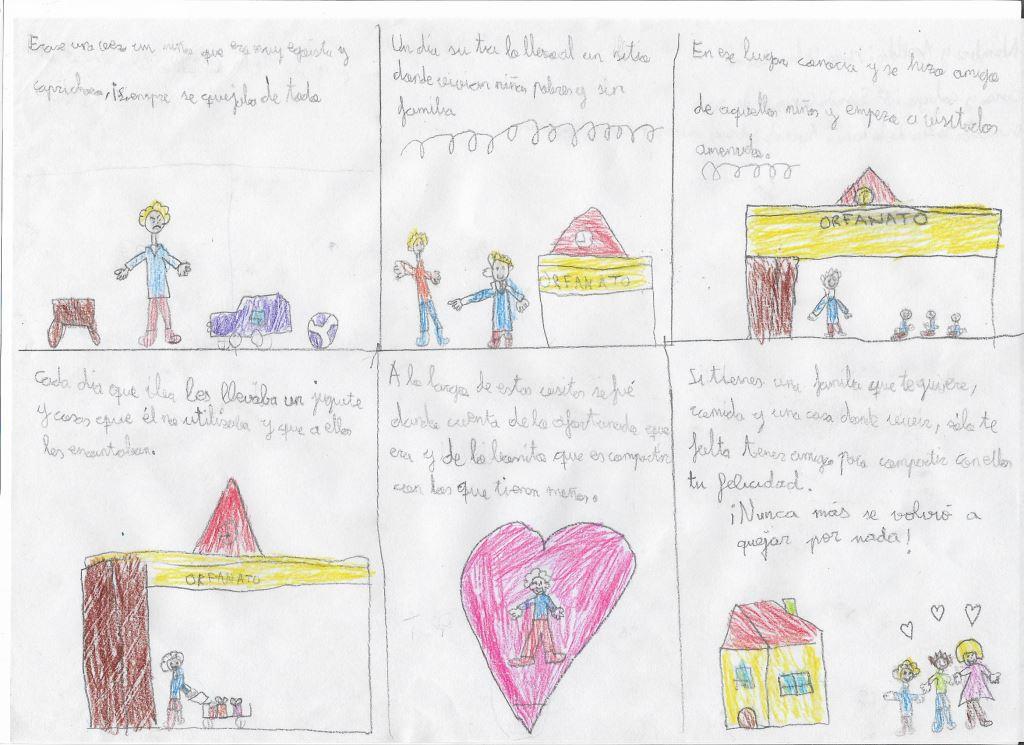 Erase una vez un niño que era muy egoista y
caprichoso, siempre se quejaba de todo
Un día su tia lo llevo al un sitio
donde vivian niños pobres y sin
familia
ORFANATO
En ese lugar conocia y se hizo amigo
de aquellos niños y empezo a visitarlos
amenudo.
ORFANATO
Cada día que iba les llevaba un juguete
y cosas que él no utilizaba y que a ellos
les encantaban.
ORFANATO
A lo largo de estas visitas se fué
dando cuenta de lo afortunado que
era y de lo bonito que es compartir
con los que tienen menos.
Si tienes una familia que te quiere,
comida y una casa donde vivir, sólo te
falta tener amigos para compartir con ellos
tu felicidad.
¡Nunca más se volvió a
quejar por nada!